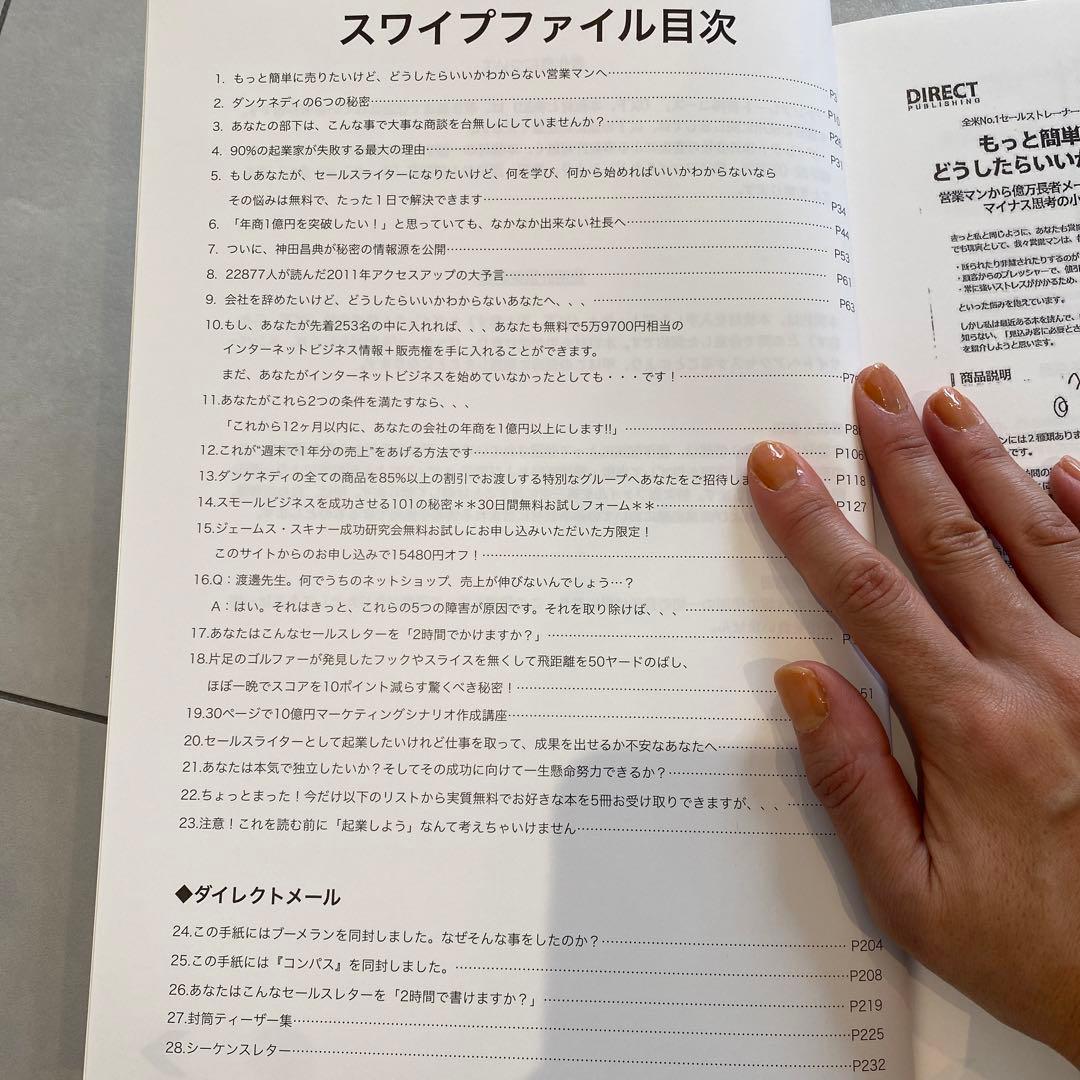 スワイプファイル目次
1. もっと簡単に売りたいけど、どうしたらいいかわからない営業マンへ……P3
2. ダンケネディの6つの秘密……P10
3. あなたの部下は、こんな事で大事な商談を台無しにしていませんか？……
4. 90%の起業家が失敗する最大の理由……P31
5. もしあなたが、セールスライターになりたいけど、何を学び、何から始めればいいかわからないなら
その悩みは無料で、たった１日で解決できます……P34
6. 「年商1億円を突破したい！」と思っていても、なかなか出来ない社長へ……P44
7. ついに、神田昌典が秘密の情報源を公開……P53
8. 22877人が読んだ2011年アクセスアップの大予言……P61
9. 会社を辞めたいけど、どうしたらいいかわからないあなたへ、、、……P63
10.もし、あなたが先着253名の中に入れれば、、、あなたも無料で5万9700円相当の
インターネットビジネス情報＋販売権を手に入れることができます。
まだ、あなたがインターネットビジネスを始めていなかったとしても・・・です！……
11.あなたがこれら2つの条件を満たすなら、、、
「これから12ヶ月以内に、あなたの会社の年商を1億円以上にします!!」……
12.これが“週末で1年分の売上”をあげる方法です……P106
13.ダンケネディの全ての商品を85%以上の割引でお渡しする特別なグループへあなたをご招待しま……P118
14.スモールビジネスを成功させる101の秘密＊＊30日間無料お試しフォーム＊＊……P127
15.ジェームス・スキナー成功研究会無料お試しにお申し込みいただいた方限定！
このサイトからのお申し込みで15480円オフ！……
16.Q：渡邊先生。何でうちのネットショップ、売上が伸びないんでしょう…？
A：はい。それはきっと、これらの5つの障害が原因です。それを取り除けば、、、……
17.あなたはこんなセールスレターを「2時間でかけますか？」……P
18.片足のゴルファーが発見したフックやスライスを無くして飛距離を50ヤードのばし、
ほぼ一晩でスコアを10ポイント減らす驚くべき秘密！……51
19.30ページで10億円マーケティングシナリオ作成講座……
20.セールスライターとして起業したいけれど仕事を取って、成果を出せるか不安なあなたへ……
21.あなたは本気で独立したいか？そしてその成功に向けて一生懸命努力できるか？……
22.ちょっとまった！今だけ以下のリストから実質無料でお好きな本を5冊お受け取りできますが、、、……
23.注意！これを読む前に「起業しよう」なんて考えちゃいけません……
◆ダイレクトメール
24.この手紙にはブーメランを同封しました。なぜそんな事をしたのか？……P204
25.この手紙には『コンパス』を同封しました。……P208
26.あなたはこんなセールスレターを「2時間で書けますか？」……P219
27.封筒ティーザー集……P225
28.シーケンスレター……P232
DIRECT
PUBLISHING
全米No.1セールストレーナー
もっと簡単
どうしたらいいか
営業マンから億万長者メー
マイナス思考の小
きっと私と同じように、あなたも営業
でも現実として、我々営業マンは、
・断られたり非難されたりするのが
・顧客からのプレッシャーで、値引
・常に強いストレスがかかるため、
といった悩みを抱えています。
しかし私は最近ある本を読んで、
知らない、「見込み客に必要とさ
を紹介しようと思います。
商品説明
には２種類ありま
です。